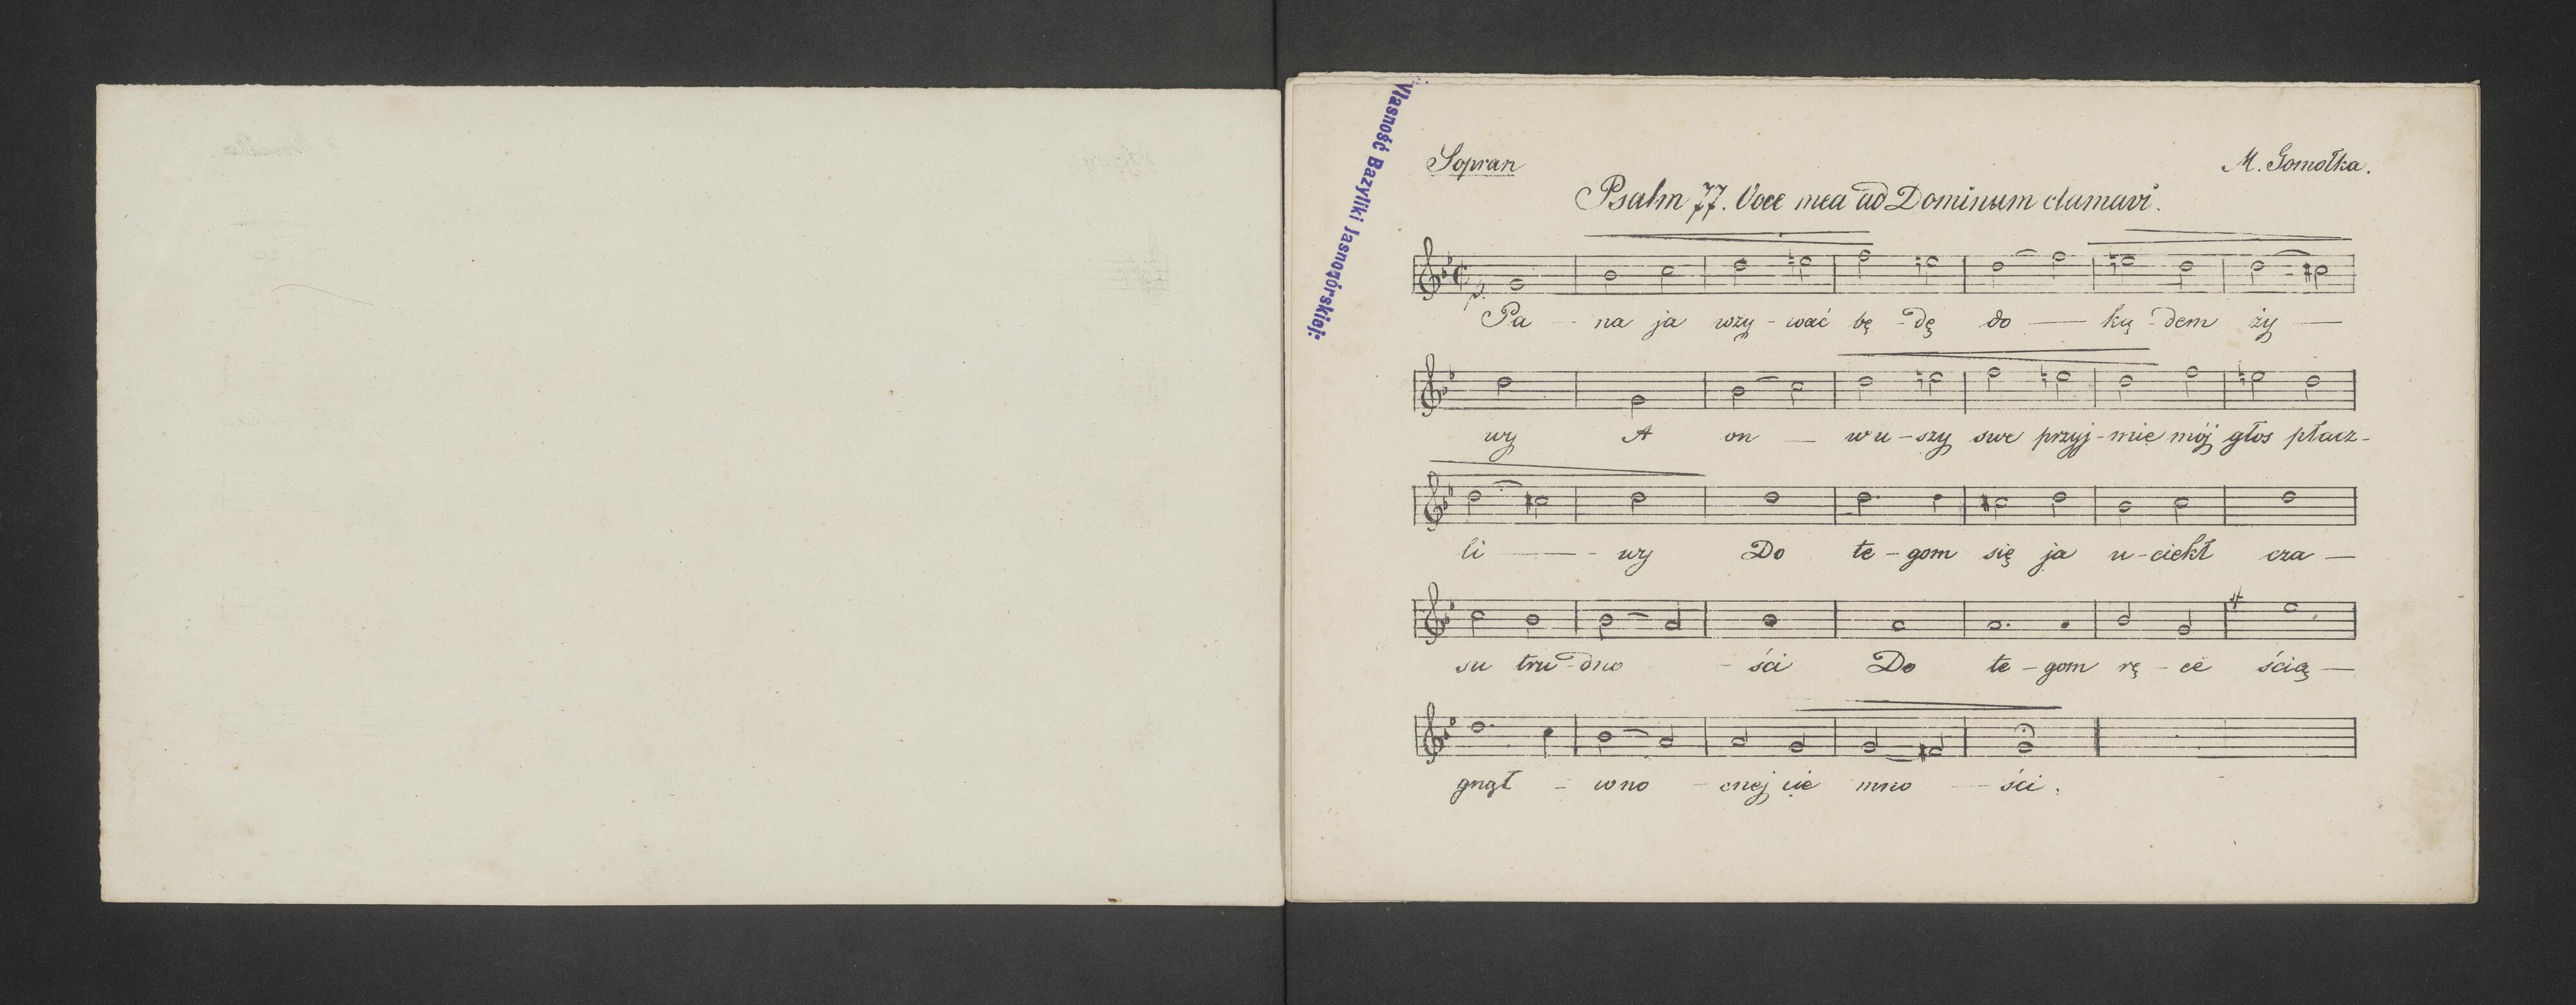 Własność Bazyliki Jasnogórskiej.
Sopran
M. Gomołka.
Psalm 77. Voce mea ad Dominum clamavi.
p.
Pa - na ja wzy - wać bę - dę do — ką - dem ży —
wy A on — w u - szy swe przyj - mie mój głos płacz -
li — - wy Do te - gom się ja u - ciekł cza —
su tru - dno - ści Do te - gom rę - ce ścią —
gnął - w no - cnej cie mno — ści.